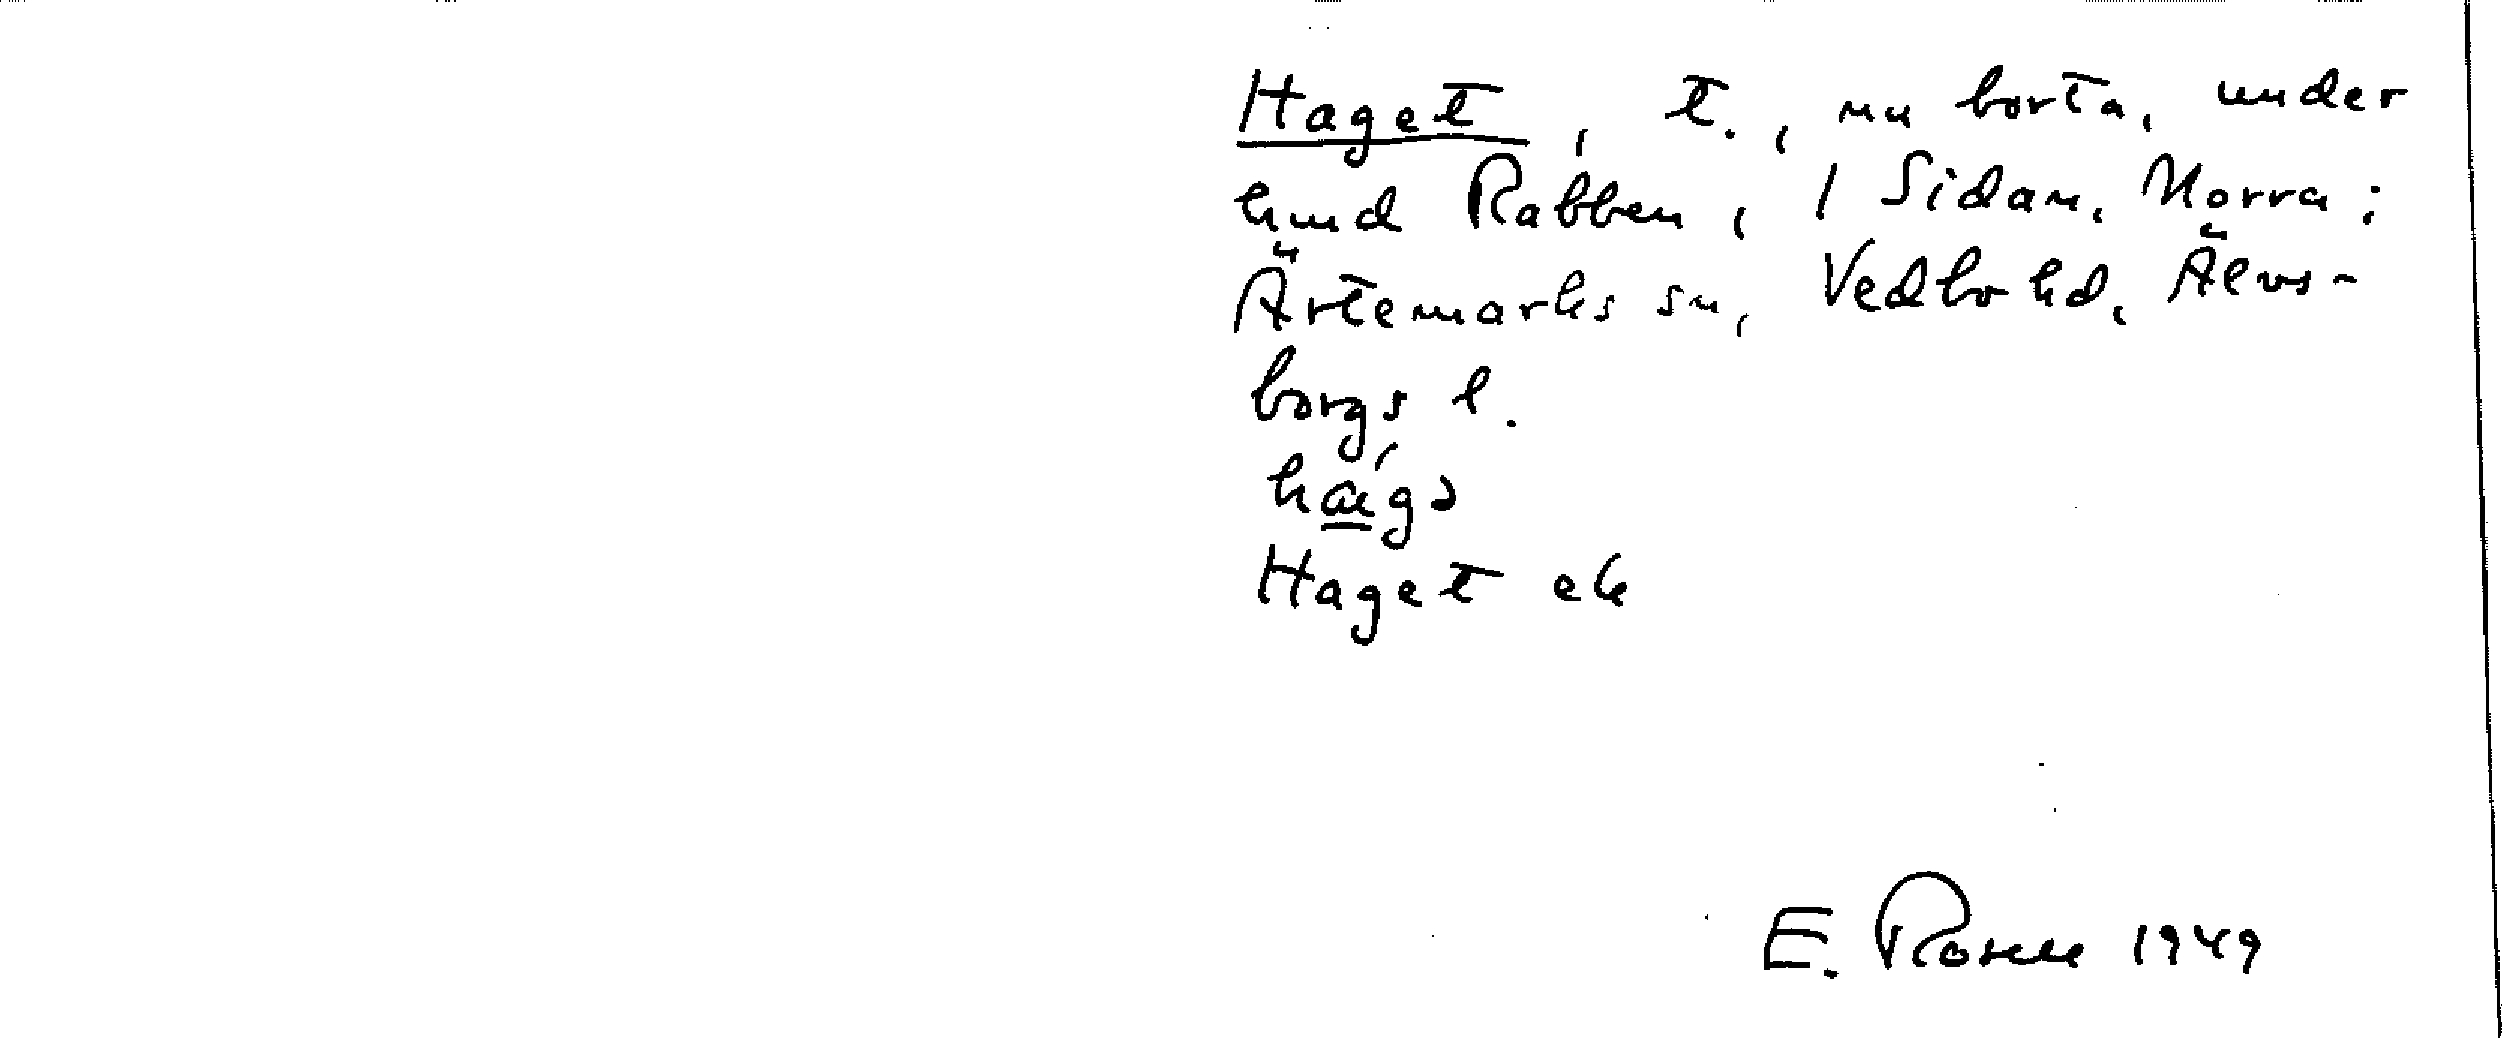 Haget, t., nu borta, under
kmd Rabben, 1 Sidan, Norra;
Ärtemarks sn, Vedbo hd, Älvs-
borgs l.
Haget ek
E. Rosell 1949